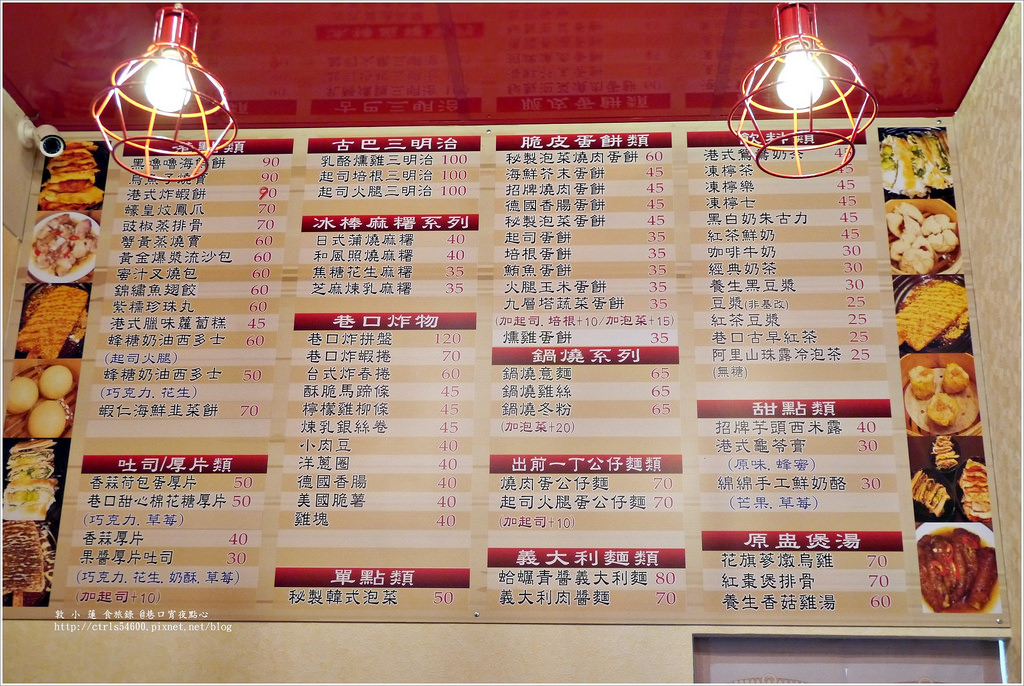 黑嚕嚕海鮮餅 90
烏魚子燒賣 90
港式炸蝦餅 90
蠔皇炆鳳爪 70
豉椒蒸排骨 70
蟹黃蒸燒賣 60
黃金爆漿流沙包 60
蜜汁叉燒包 60
錦繡魚翅餃 60
紫檽珍珠丸 60
港式臘味蘿蔔糕 45
蜂糖奶油西多士 60
(起司火腿)
蜂糖奶油西多士 50
(巧克力, 花生)
蝦仁海鮮韭菜餅 70
吐司/厚片類
香蒜荷包蛋厚片 50
巷口甜心棉花糖厚片 50
(巧克力, 草莓)
香蒜厚片 40
果醬厚片吐司 30
(巧克力, 花生, 奶酥, 草莓)
(加起司+10)
古巴三明治
乳酪燻雞三明治 100
起司培根三明治 100
起司火腿三明治 100
冰棒麻糬系列
日式蒲燒麻糬 40
和風照燒麻糬 40
焦糖花生麻糬 35
芝麻煉乳麻糬 35
巷口炸物
巷口炸拼盤 120
巷口炸蝦捲 70
台式炸春捲 60
酥脆馬蹄條 45
檸檬雞柳條 45
煉乳銀絲卷 45
小肉豆 40
洋蔥圈 40
德國香腸 40
美國脆薯 40
雞塊 40
單點類
秘製韓式泡菜 50
脆皮蛋餅類
秘製泡菜燒肉蛋餅 60
海鮮芥末蛋餅 45
招牌燒肉蛋餅 45
德國香腸蛋餅 45
秘製泡菜蛋餅 45
起司蛋餅 35
培根蛋餅 35
鮪魚蛋餅 35
火腿玉米蛋餅 35
九層塔蔬菜蛋餅 35
(加起司, 培根+10/加泡菜+15)
燻雞蛋餅 35
鍋燒系列
鍋燒意麵 65
鍋燒雞絲 65
鍋燒冬粉 65
(加泡菜+20)
出前一丁公仔麵類
燒肉蛋公仔麵 70
起司火腿蛋公仔麵 70
(加起司+10)
義大利麵類
蛤蠣青醬義大利麵 80
義大利肉醬麵 70
飲料類
港式鴛鴦奶茶 45
凍檸茶 45
凍檸樂 45
凍檸士 45
黑白奶朱古力 45
紅茶鮮奶 45
咖啡牛奶 30
經典奶茶 30
養生黑豆漿 30
豆漿(非基改) 25
紅茶豆漿 25
巷口古早紅茶 25
阿里山珠露冷泡茶 25
(無糖)
甜點類
招牌芋頭西米露 40
港式龜苓膏 30
(原味, 蜂蜜)
綿綿手工鮮奶酪 30
(芒果, 草莓)
原盅煲湯
花旗蔘燉烏雞 70
紅棗煲排骨 70
養生香菇雞湯 60
敦 小 蓮 食旅錄 @巷口宵夜點心
http://ctrls54600.pixnet.net/blog